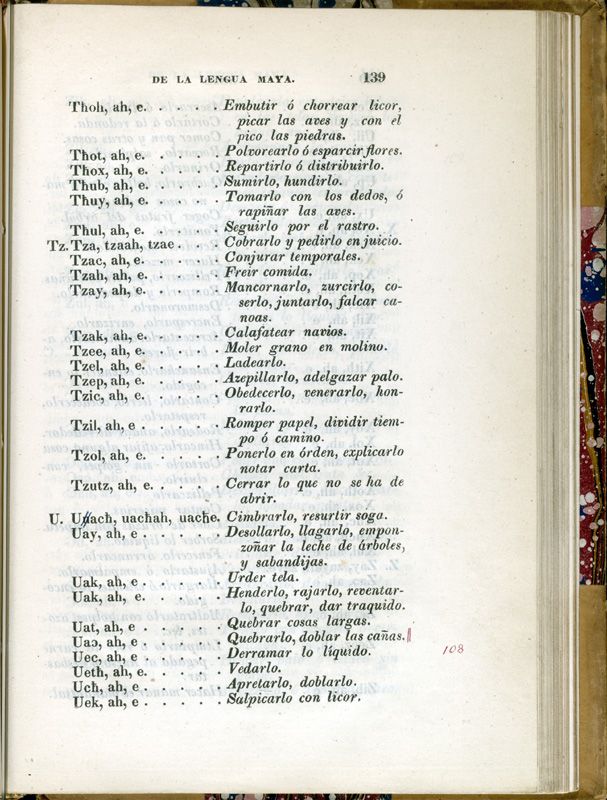 DE LA LENGUA MAYA. 139
Thoh, ah, e. . . . . . Embutir ó chorrear licor,
picar las aves y con el
pico las piedras.
Thot, ah, e. . . . . . Polvorearlo ó esparcir flores.
Thox, ah, e. . . . . . Repartirlo ó distribuirlo.
Thub, ah, e. . . . . . Sumirlo, hundirlo.
Thuy, ah, e. . . . . . Tomarlo con los dedos, ó
rapiñar las aves.
Thul, ah, e. . . . . . Seguirlo por el rastro.
Tz. Tza, tzaah, tzae . . . Cobrarlo y pedirlo en juicio.
Tzac, ah, e. . . . . . Conjurar temporales.
Tzah, ah, e. . . . . . Freir comida.
Tzay, ah, e. . . . . . Mancornarlo, zurcirlo, co-
serlo, juntarlo, falcar ca-
noas.
Tzak, ah, e. . . . . . Calafatear navios.
Tzee, ah, e. . . . . . Moler grano en molino.
Tzel, ah, e. . . . . . Ladearlo.
Tzep, ah, e. . . . . . Azepillarlo, adelgazar palo.
Tzic, ah, e. . . . . . Obedecerlo, venerarlo, hon-
rarlo.
Tzil, ah, e . . . . . . Romper papel, dividir tiem-
po ó camino.
Tzol, ah, e. . . . . . Ponerlo en órden, explicarlo
notar carta.
Tzutz, ah, e. . . . . . Cerrar lo que no se ha de
abrir.
U. Uach, uachah, uache. Cimbrarlo, resurtir soga.
Uay, ah, e . . . . . . Desollarlo, llagarlo, empon-
zoñar la leche de árboles,
y sabandijas.
Uak, ah, e . . . . . . Urder tela.
Uak, ah, e. . . . . . Henderlo, rajarlo, reventar-
lo, quebrar, dar traquido.
Uat, ah, e . . . . . . Quebrar cosas largas.
Uaɔ, ah, e . . . . . . Quebrarlo, doblar las cañas.
Uec, ah, e . . . . . . Derramar lo líquido. 108
Ueth, ah, e. . . . . . Vedarlo.
Uch, ah, e . . . . . . Apretarlo, doblarlo.
Uek, ah, e . . . . . . Salpicarlo con licor.